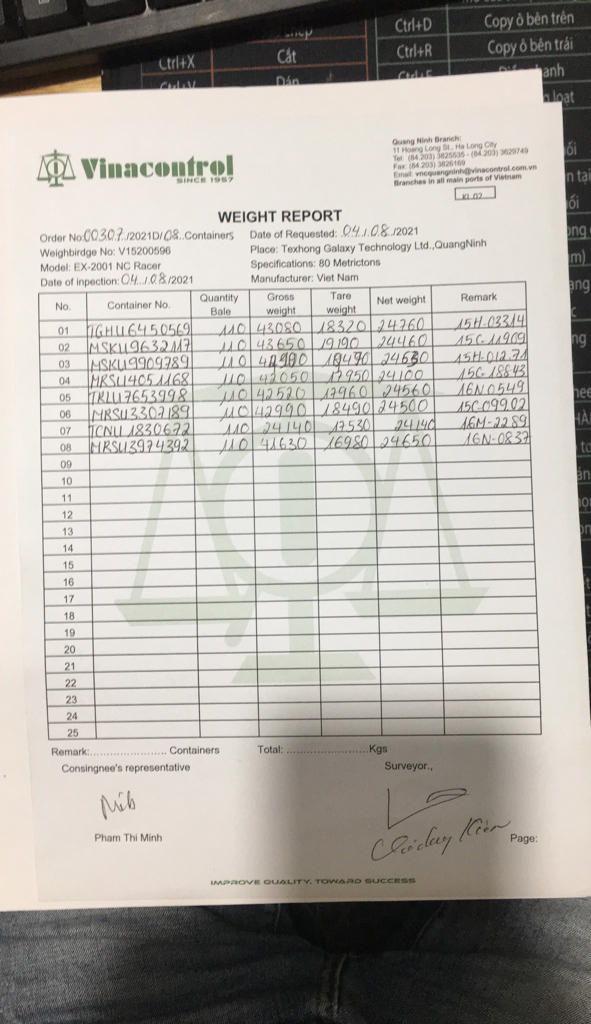 Ctrl+D Copy ô bên trên
Ctrl+X Cắt Ctrl+R Copy ô bên trái
Dán
Vinacontrol
SINCE 1957
Quang Ninh Branch:
11 Hoang Long St., Ha Long City
Tel: (84.203) 3825535 - (84.203) 3629749
Fax: (84.203) 3826169
Email: vncquangninh@vinacontrol.com.vn
Branches in all main ports of Vietnam
KL 02
WEIGHT REPORT
Order No:00307./2021D/08..Containers Date of Requested: 04./.08./2021
Weighbirdge No: V15200596 Place: Texhong Galaxy Technology Ltd.,QuangNinh
Model: EX-2001 NC Racer Specifications: 80 Metrictons
Date of inpection: 04../.08/2021 Manufacturer: Viet Nam
No. Container No. Quantity Bale Gross weight Tare weight Net weight Remark
01 TGHU6450569 110 43080 18320 24760 15H-03314
02 MSKU9632117 110 43650 19190 24460 15C-11909
03 MSKU9909789 110 15H-01271
04 MRSU4051168 110 42050 17950 24100 15C-18843
05 TRLU7653998 110 42520 17960 24560 16N0549
06 MRSU3307189 110 42990 18490 24500 15C-09902
07 TCNU1830672 110 24140 17530 24140 16M-2289
08 MRSU3974392 110 41630 16980 24650 16N-0837
09
10
11
12
13
14
15
16
17
18
19
20
21
22
23
24
25
Remark:........................ Containers Total: ..........................Kgs
Consingnee's representative Surveyor.,
Pham Thi Minh
Page:
IMPROVE QUALITY, TOWARD SUCCESS